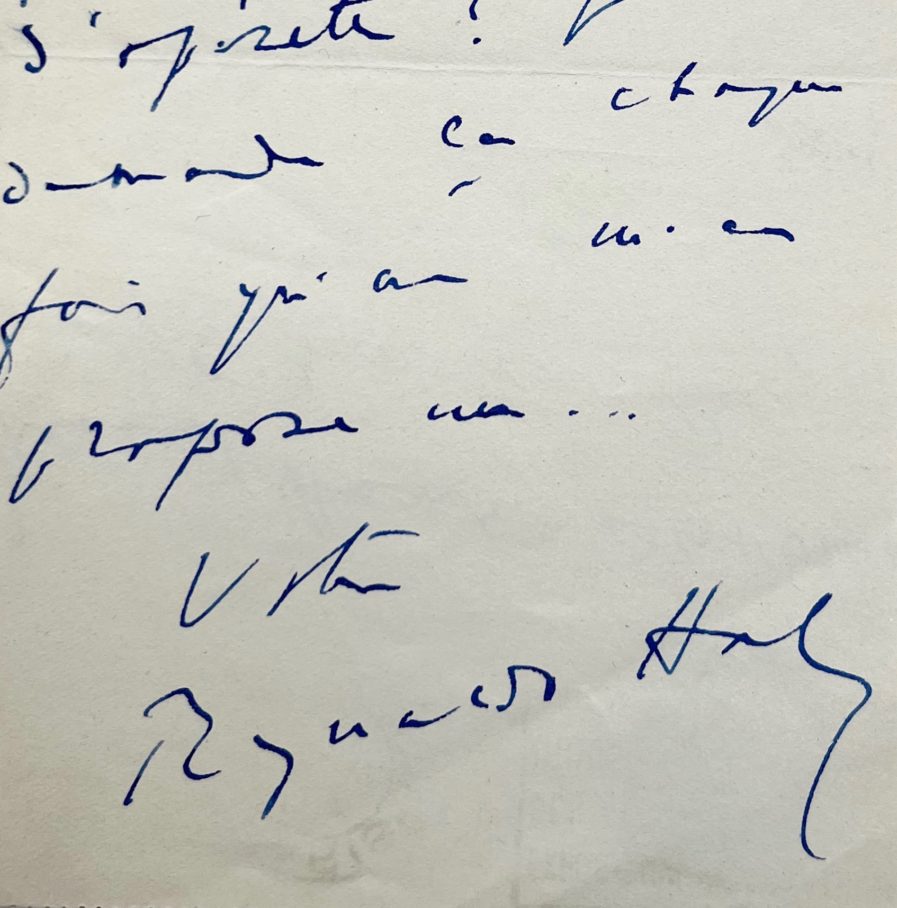 d'opérette ?
demande ça chaque
fois qu'on m'en
propose une ...
Votre
Reynaldo Hahn